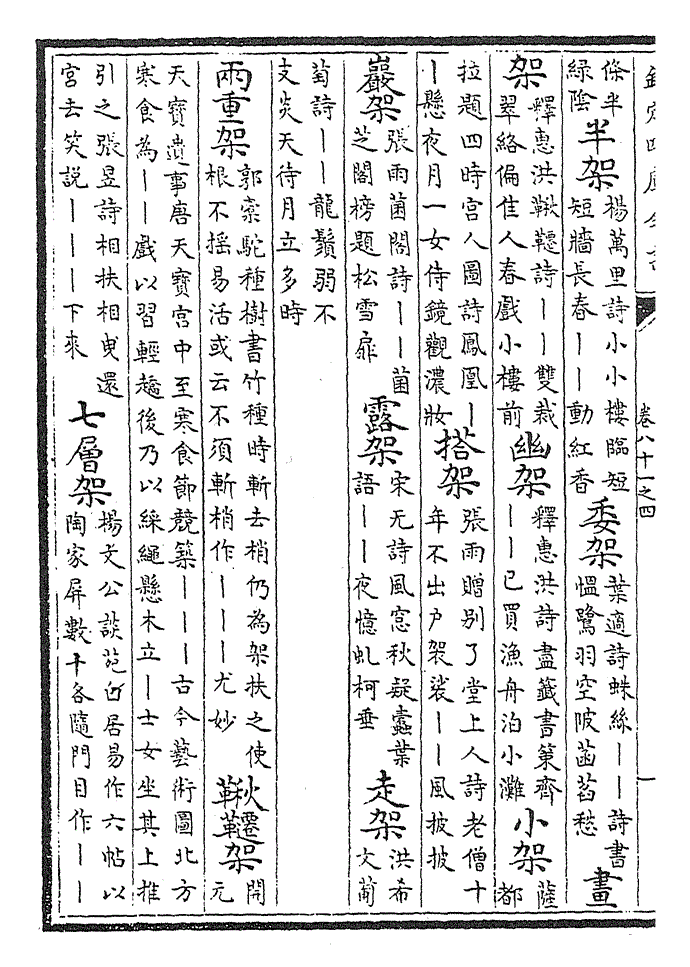 欽定四庫全書 卷八十一之四 一
條半
綠陰
半架
楊萬里詩小小樓臨短
短牆長春丨丨動紅香
委架
葉適詩蛛絲丨丨詩書
愠鷺羽空陂菡萏愁
畫
架
釋惠洪鞦韆詩丨丨雙裁
翠絡偏佳人春戲小樓前
幽架
釋惠洪詩盡籤書策齊
丨丨已買漁舟泊小灘
小架
薩
都
拉題四時宮人圖詩鳳凰丨
丨懸夜月一女侍鏡觀濃妝
搭架
張雨贈別了堂上人詩老僧十
年不出户袈裟丨丨風披披
巖架
張雨菌閣詩丨丨菌
芝閣榜題松雪扉
露架
宋无詩風窓秋疑蠧葉
語丨丨夜憶虬柯垂
走架
洪希
文葡
萄詩丨丨龍鬚弱不
支炎天待月立多時
兩重架
郭橐駝種樹書竹種時斬去梢仍為架扶之使
根不揺易活或云不須斬梢作丨丨丨尤妙
鞦韆架
開
元
天寶遺事唐天寶宮中至寒食節競築丨丨丨古今藝術圖北方
寒食為丨丨戲以習輕趫後乃以綵繩懸木立丨士女坐其上推
引之張昱詩相扶相曳還
宮去笑説丨丨丨下來
七層架
楊文公談苑白居易作六帖以
陶家屏數千各隨門目作丨丨